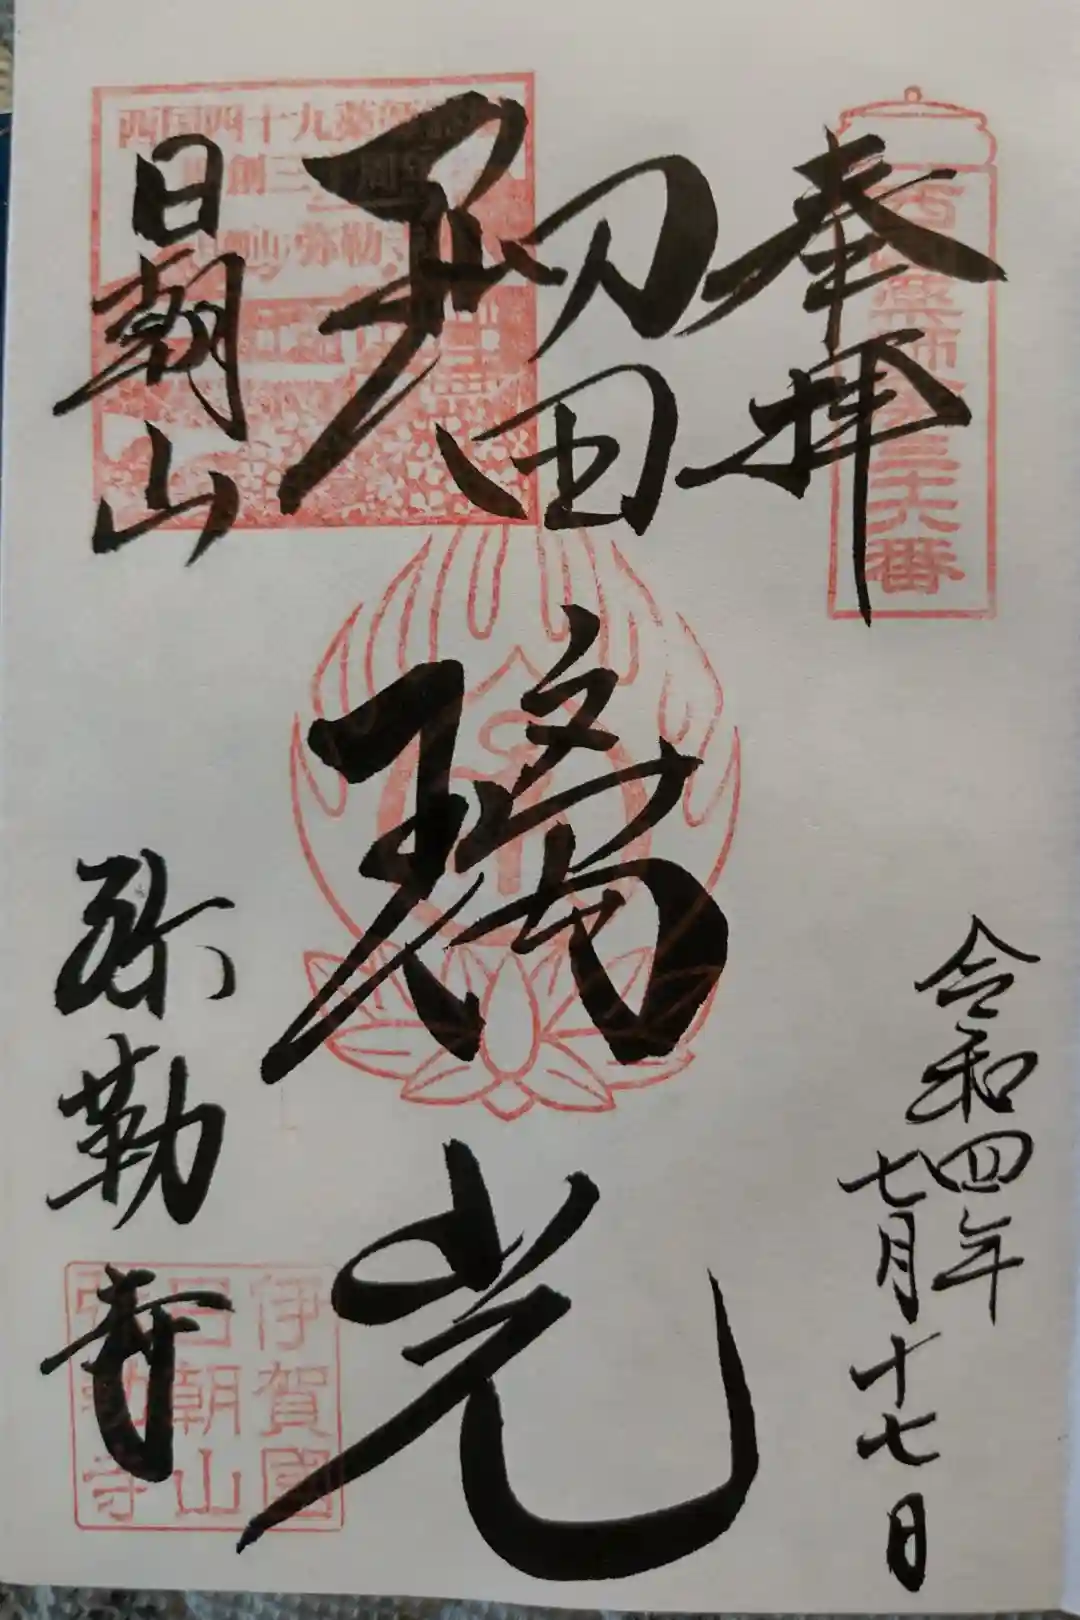 奉拝
令和四年
七月十七日
瑠璃光
日朝山
弥勒寺
西国薬師第三十六番
西国四十九薬師
弥勒寺
伊賀國
日朝山
弥勒寺